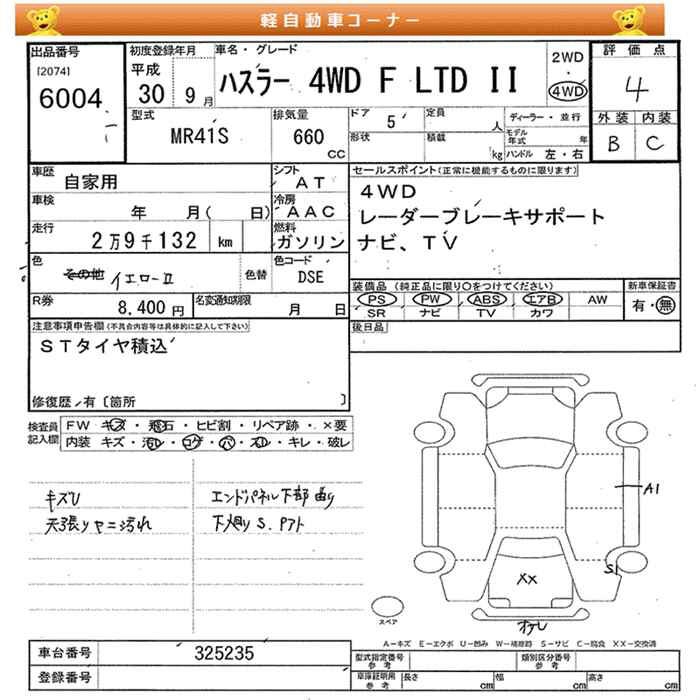 軽自動車コーナー
出品番号
[2074]
6004
初度登録年月
平成
30 9 月
車名・グレード
ハスラー 4WD F LTD II
2WD
・
4WD
評価点
4
外装 内装
B C
型式
MR41S
排気量
660
cc
ドア 5
形状
定員
人
積載
kg
ディーラー・並行
モデル年式 年
ハンドル 左・右
車歴
自家用
シフト
AT
車検
年 月( 日)
冷房
AAC
走行
2万9千132 km
燃料
ガソリン
色
その他 イエローII
色替
色コード
DSE
R券
8,400 円
名変通知期限
月 日
セールスポイント(正常に機能するものに限ります)
4WD
レーダーブレーキサポート
ナビ、TV
装備品(純正品に限り○をつけてください)
PS PW ABS エアB AW
SR ナビ TV カワ
新車保証書
有・無
後日品
注意事項申告欄(不具合内容等は具体的に記入して下さい)
STタイヤ積込
修復歴・有〔箇所 〕
検査員
記入欄
FW キズ・飛石・ヒビ割・リペア跡・×要
内装 キズ・汚れ・コゲ・穴・スレ・キレ・破レ
キズU
天張りヤニ汚れ
エンドパネル下部曲り
下廻りS.アフト
A1
S1
XX
スペア
A－キズ E－エクボ U－凹み W－補修跡 S－サビ C－腐食 XX－交換済
車台番号 325235
登録番号
型式指定番号
参考
類別区分番号
参考
車庫証明用
参考
長さ cm
幅 cm
高さ cm